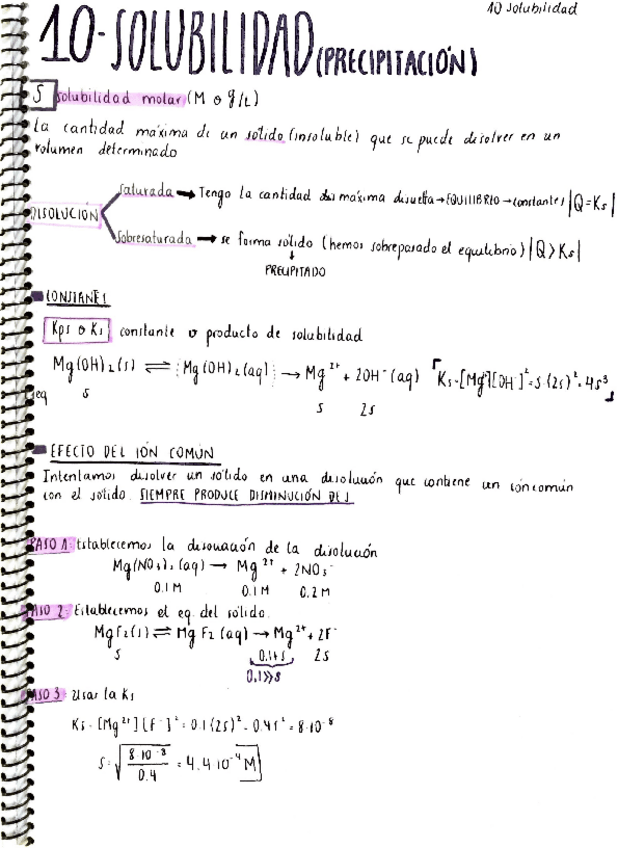 10 Solubilidad
10-SOLUBILIDAD (PRECIPITACIÓN)
S solubilidad molar (M o g/L)
La cantidad máxima de un sólido (insoluble) que se puede disolver en un
volumen determinado
Saturada → Tengo la cantidad máxima disuelta → EQUILIBRIO → constantes |Q=Ks|
DISOLUCIÓN
Sobresaturada → se forma sólido (hemos sobrepasado el equilibrio) |Q>Ks|
↓
PRECIPITADO
CONSTANTES
Kps o Ks constante o producto de solubilidad
Mg(OH)₂(s) ⇌ Mg(OH)₂(aq) → Mg²⁺ + 2OH⁻(aq) Ks=[Mg²⁺][OH⁻]²=s·(2s)²=4s³
eq s s 2s
EFECTO DEL IÓN COMÚN
Intentamos disolver un sólido en una disolución que contiene un ión común
con el sólido. SIEMPRE PRODUCE DISMINUCIÓN DE S
PASO 1: Establecemos la disociación de la disolución
Mg(NO₃)₂(aq) → Mg²⁺ + 2NO₃⁻
0.1M 0.1M 0.2M
PASO 2: Establecemos el eq. del sólido.
MgF₂(s) ⇌ MgF₂(aq) → Mg²⁺ + 2F⁻
s 0.1+s 2s
0.1>>s
PASO 3: Usar la Ks
Ks=[Mg²⁺][F⁻]²=0.1(2s)²=0.4s²=8·10⁻⁸
s=√(8·10⁻⁸/0.4)=4.4·10⁻⁴M